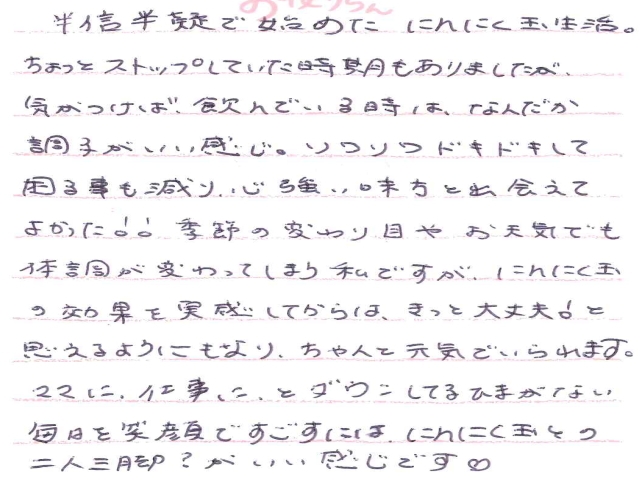 半信半疑で始めた にんにく玉生活。
ちょっとストップしていた時期もありましたが、
気がつけば、飲んでいる時は、なんだか
調子がいい感じ。ソワソワドキドキして
困る事も減り、心強い味方と出会えて
よかった!! 季節の変わり目や お天気でも
体調が変わってしまう私ですが、にんにく玉
の効果を実感してからは、きっと大丈夫!と
思えるようにもなり、ちゃんと元気でいられます。
ママに、仕事に、と ダウンしてるひまがない
毎日を笑顔ですごすには、にんにく玉との
二人三脚?がいい感じです♡